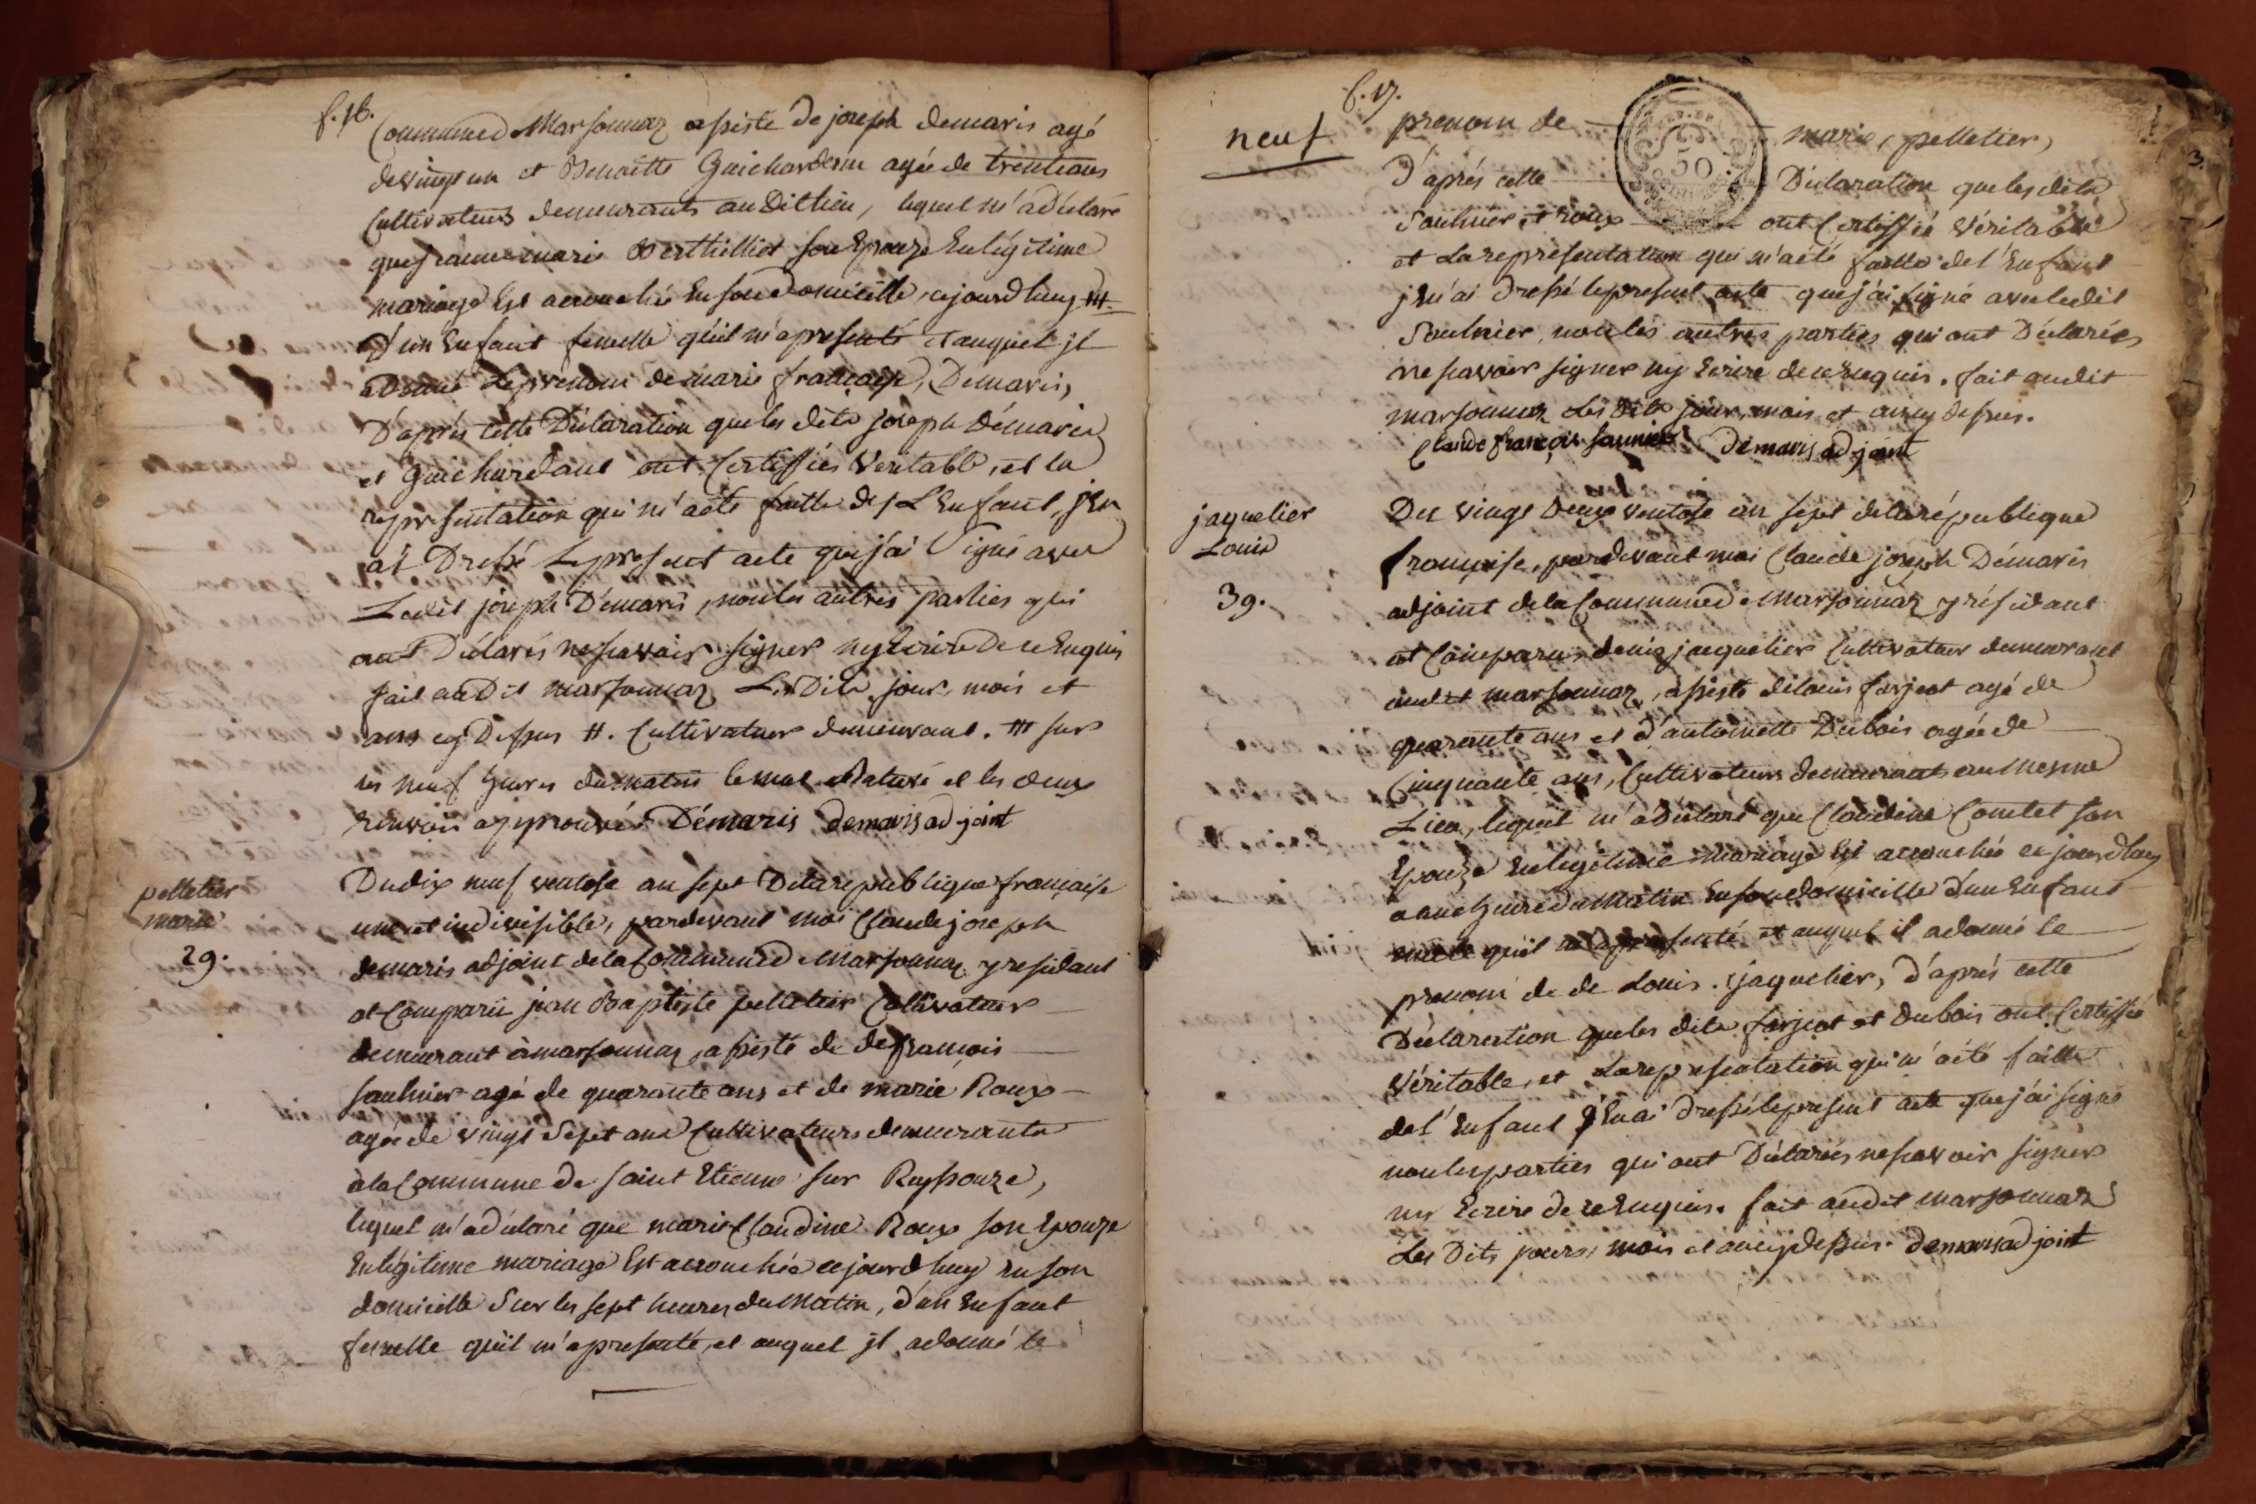 f. 16.
Commune de Marsonnaz assisté de joseph demaris agé
de vingt un et Benoitte Guichardenn agée de trente ans
Cultivateurs demeurants au Dit lieu, lequel m'a déclaré
que jeanne marie Berthilliot son Epouze En légitime
mariage Est accouchée En son domicille, cejourdhuy #-
D'un Enfant femelle quil m'a presenté et auquel jl
a Donné Le prenom de marie françoise, Demaris,
D'après cette Déclaration que les dits joseph Démaris
et Guichardant ont Certiffiés Veritable, et la
representation qui m'a été faitte de L'Enfant, j'En
ai Dressé Le present acte que j'ai Signé avec
Ledit joseph Démaris, non les autres parties qui
ont Déclarés ne savoir signer ny Ecrire De ce Enquis
fait au Dit marsonnaz Les Dits jour, mois et
ans cy Dessus #. Cultivateur demeurant. # sur
les neuf heures du matin le mot Raturé et les deux
Renvois approuvés Démaris demaris adjoint
pelletier
marie
29.
Du dix neuf ventose an sept De la republique française
une et indivisible, pardevant moi Claude joseph
demaris adjoint de la Commune de Marsonnaz y residant
at Comparü jean Baptiste pelletier Cultivateur
demeurant à marsonnaz, assisté de de françois
saulnier agé de quarante ans et de marie Roux
agée de vingt Sept ans Cultivateurs demeurants
à la Commune de saint Etienne sur Reyssouze,
lequel m'a déclaré que marie Claudine Roux son Epouze
En légitime mariage Est accouchée cejourdhuy En son
domicille Sur les sept heures du Matin, d'un Enfant
femelle quil m'a presenté, et auquel jl a donné le
f. 17.
neuf
prenom de marie, pelletier,
D'aprés cette Déclaration que les dits
Saulnier et roux ont Certiffié Véritable
et La representation qui m'a été faitte de l'Enfant
j'En ai Dressé le present acte que j'ai signé avec ledit
Saulnier, non les autres parties qui ont Déclarées
ne savoir signer ny Ecrire de ce Enquis. fait au dit
marsonnaz Les Dits jour, mois et an cy dessus.
Claude françois saunier Démaris adjoint
jaquelier
Louis
39.
Du vingt Deux ventose an sept de la république
françoise, pardevant moi Claude joseph Démaris
adjoint de la Commune de Marsonnaz y résidant
at Comparu denis jaquelier Cultivateur demeurant
audit marsonnaz, assisté de louis farjeot agé de
quarante ans et d'antoinette Dubois agée de
Cinquante ans, Cultivateurs demeurants au Mesme
Lieu, lequel m'a déclaré que Claudine Comtet son
Epouze En legitime Mariage Est accouchée cejourdhuy
a une heure du Matin En son domicille d'un Enfant
quil m'a presenté et auquel il a donné le
prenom de de Louis. jaquelier, d'aprés cette
Déclaration que les dits farjeot et dubois ont Certiffié
Véritable, et La representation qui m'a été faitte
de l'Enfant j'En ai dressé le present acte que j'ai signé
non les parties qui ont Déclarées ne savoir signer
ny Ecrire de ce Enquis. fait audit marsonnaz
Les Dits jours, mois et an cy dessus. demaris adjoint
50
3.